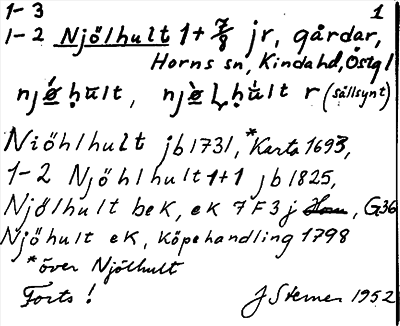 1-3 1
1-2 Njölhult 1+7/8 jr, gårdar,
Horns sn, Kinda hd, Östgl
njǿḥult, njöḷḥult r (sällsynt)
Niöhlhult jb 1731, *Karta 1693,
1-2 Njöhlhult 1+1 jb 1825,
Njölhult beK, eK 7F3j, G36
Njöhult eK, Köpehandling 1798
*över Njölhult
Forts! J Sterner 1952